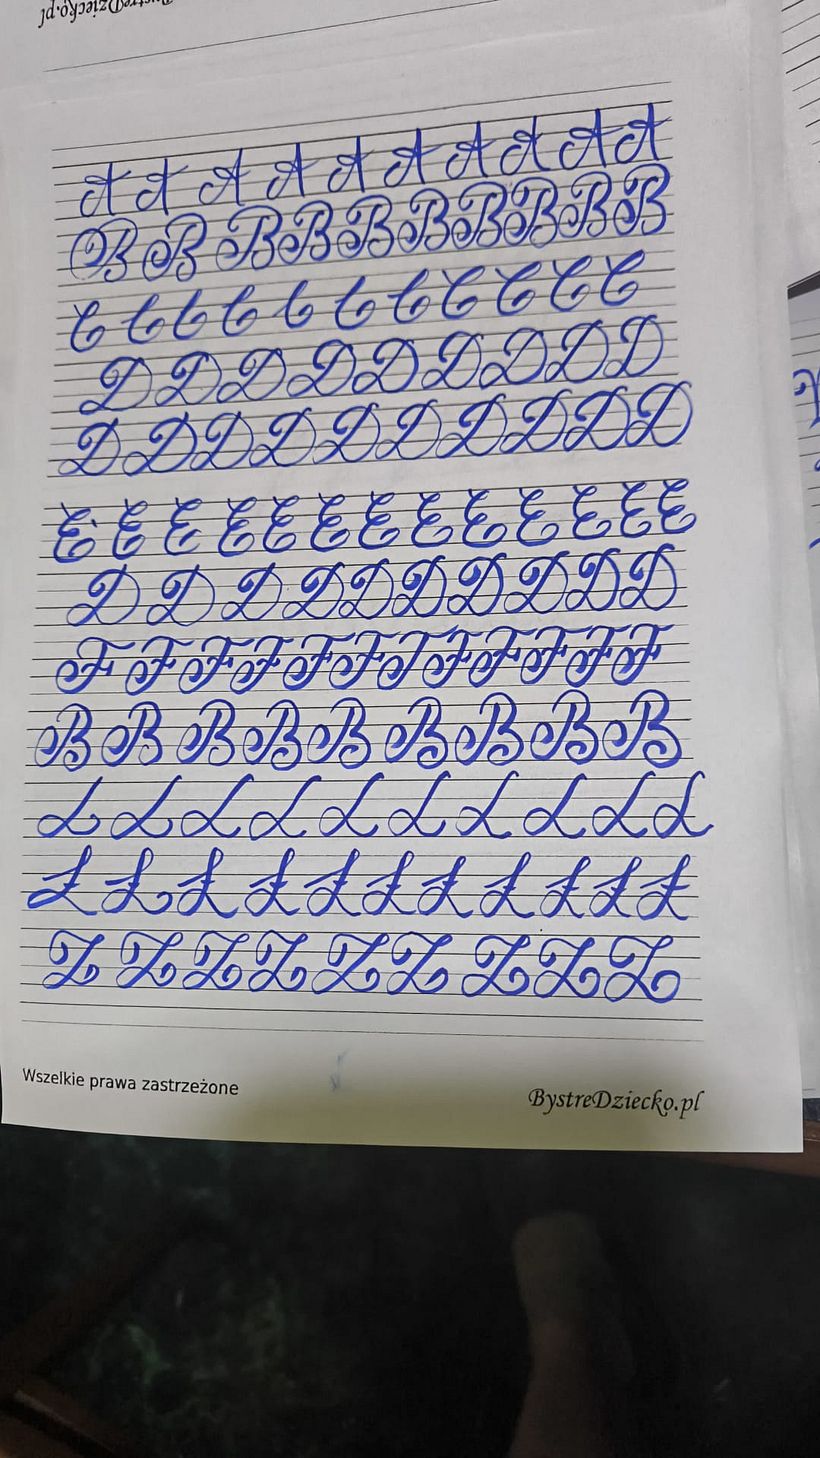 BystreDziecko.pl
A A A A A A A A A A
B B B B B B B B B B
C C C C C C C C C C C
D D D D D D D D D
D D D D D D D D D D
E E E E E E E E E E E E
D D D D D D D D D
F F F F F F F F F F F F
B B B B B B B B B
L L L L L L L L L L
Ł Ł Ł Ł Ł Ł Ł Ł Ł Ł Ł
Z Z Z Z Z Z Z Z Z
Wszelkie prawa zastrzeżone
BystreDziecko.pl